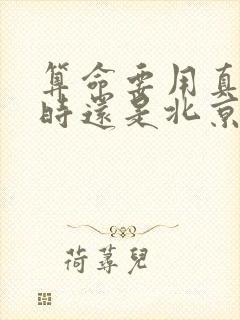 算命要用真
時還是北京
荷蕚兒